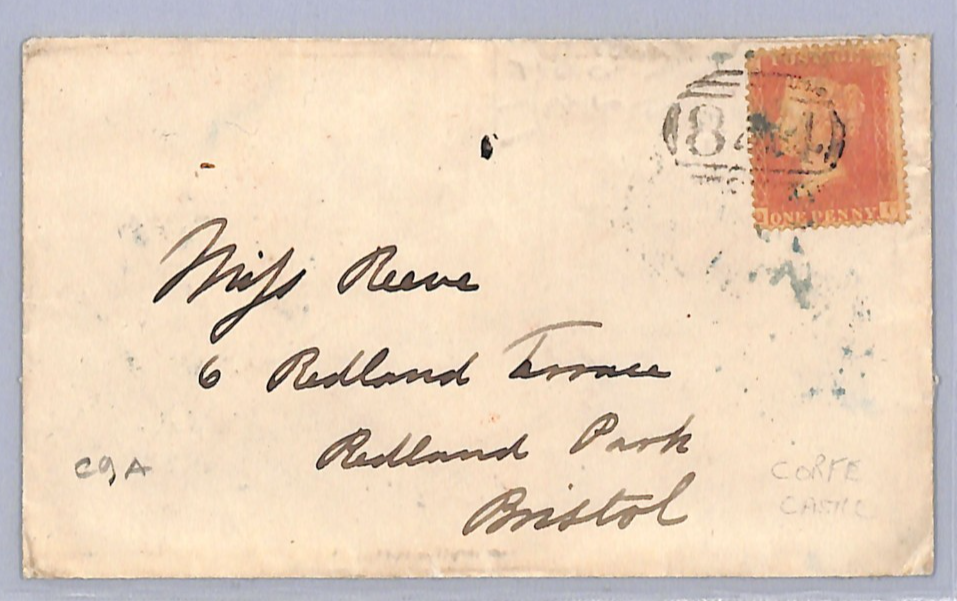 POSTAGE
844
ONE PENNY
Miſs Reeve
6 Redland Terrace
Redland Park
Bristol
C9A
CORFE
CASTLE